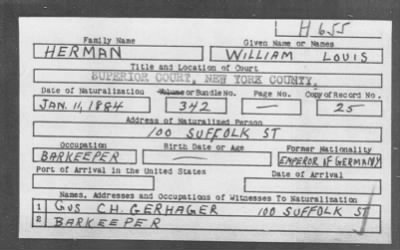 H 655
Family Name Given Name or Names
HERMAN WILLIAM LOUIS
Title and Location of Court
SUPERIOR COURT, NEW YORK COUNTY.
Date of Naturalization Volume or Bundle No. Page No. Copy of Record No.
JAN. 11, 1884 342 — 25
Address of Naturalized Person
100 SUFFOLK ST
Occupation Birth Date or Age Former Nationality
BARKEEPER — EMPEROR OF GERMANY
Port of Arrival in the United States Date of Arrival
Names, Addresses and Occupations of Witnesses To Naturalization
1 GUS CH. GERHAGER 100 SUFFOLK ST
2 BARKEEPER